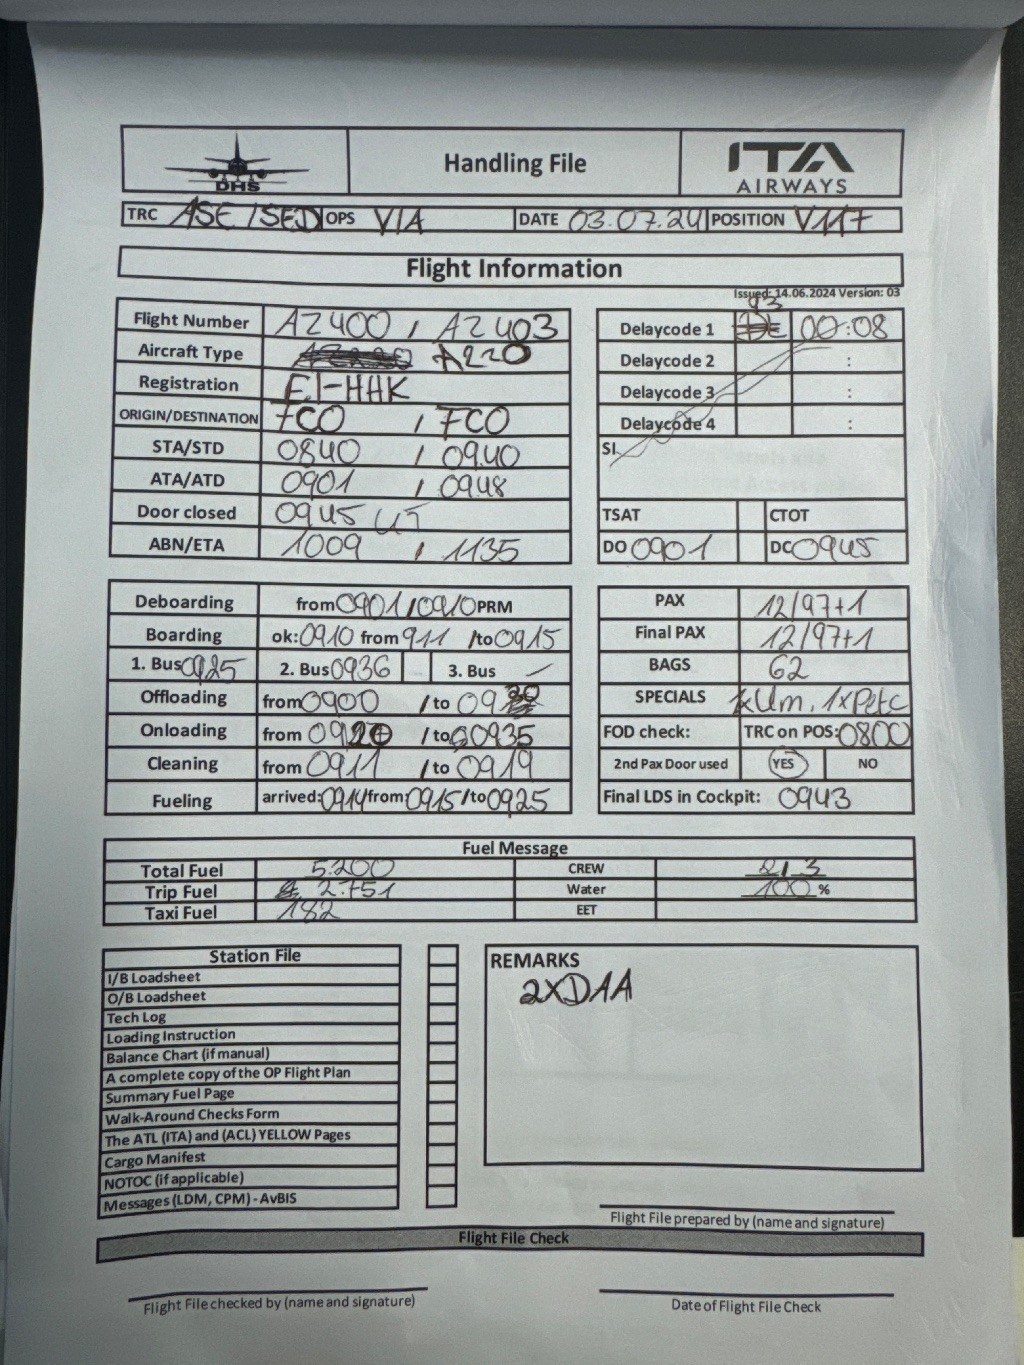 DHS
Handling File
ITA
AIRWAYS
TRC ASE/SED OPS VIA DATE 03.07.24 POSITION V117
Flight Information
Issued: 14.06.2024 Version: 03
Flight Number AZ400 / AZ403
Aircraft Type A220
Registration EI-HHK
ORIGIN/DESTINATION FCO / FCO
STA/STD 0840 / 0940
ATA/ATD 0901 / 0948
Door closed 0945
ABN/ETA 1009 / 1135
Delaycode 1 93 00:08
Delaycode 2 :
Delaycode 3 :
Delaycode 4 :
SI
TSAT CTOT
DO 0901 DC 0945
Deboarding from 0901/0910 PRM
Boarding ok: 0910 from 911 /to 0915
1. Bus 0925 2. Bus 0936 3. Bus –
Offloading from 0900 /to
Onloading from 0920 /to 0935
Cleaning from 0911 /to 0919
Fueling arrived: 0914 from: 0915 /to 0925
PAX 12/97+1
Final PAX 12/97+1
BAGS 62
SPECIALS 1xUm, 1xPetc
FOD check: TRC on POS: 0800
2nd Pax Door used YES NO
Final LDS in Cockpit: 0943
Fuel Message
Total Fuel 5.200 CREW 2/3
Trip Fuel 2.751 Water 100 %
Taxi Fuel 182 EET
Station File
I/B Loadsheet
O/B Loadsheet
Tech Log
Loading Instruction
Balance Chart (if manual)
A complete copy of the OP Flight Plan
Summary Fuel Page
Walk-Around Checks Form
The ATL (ITA) and (ACL) YELLOW Pages
Cargo Manifest
NOTOC (if applicable)
Messages (LDM, CPM) - AvBIS
REMARKS
2XDAA
Flight File prepared by (name and signature)
Flight File Check
Flight File checked by (name and signature)
Date of Flight File Check